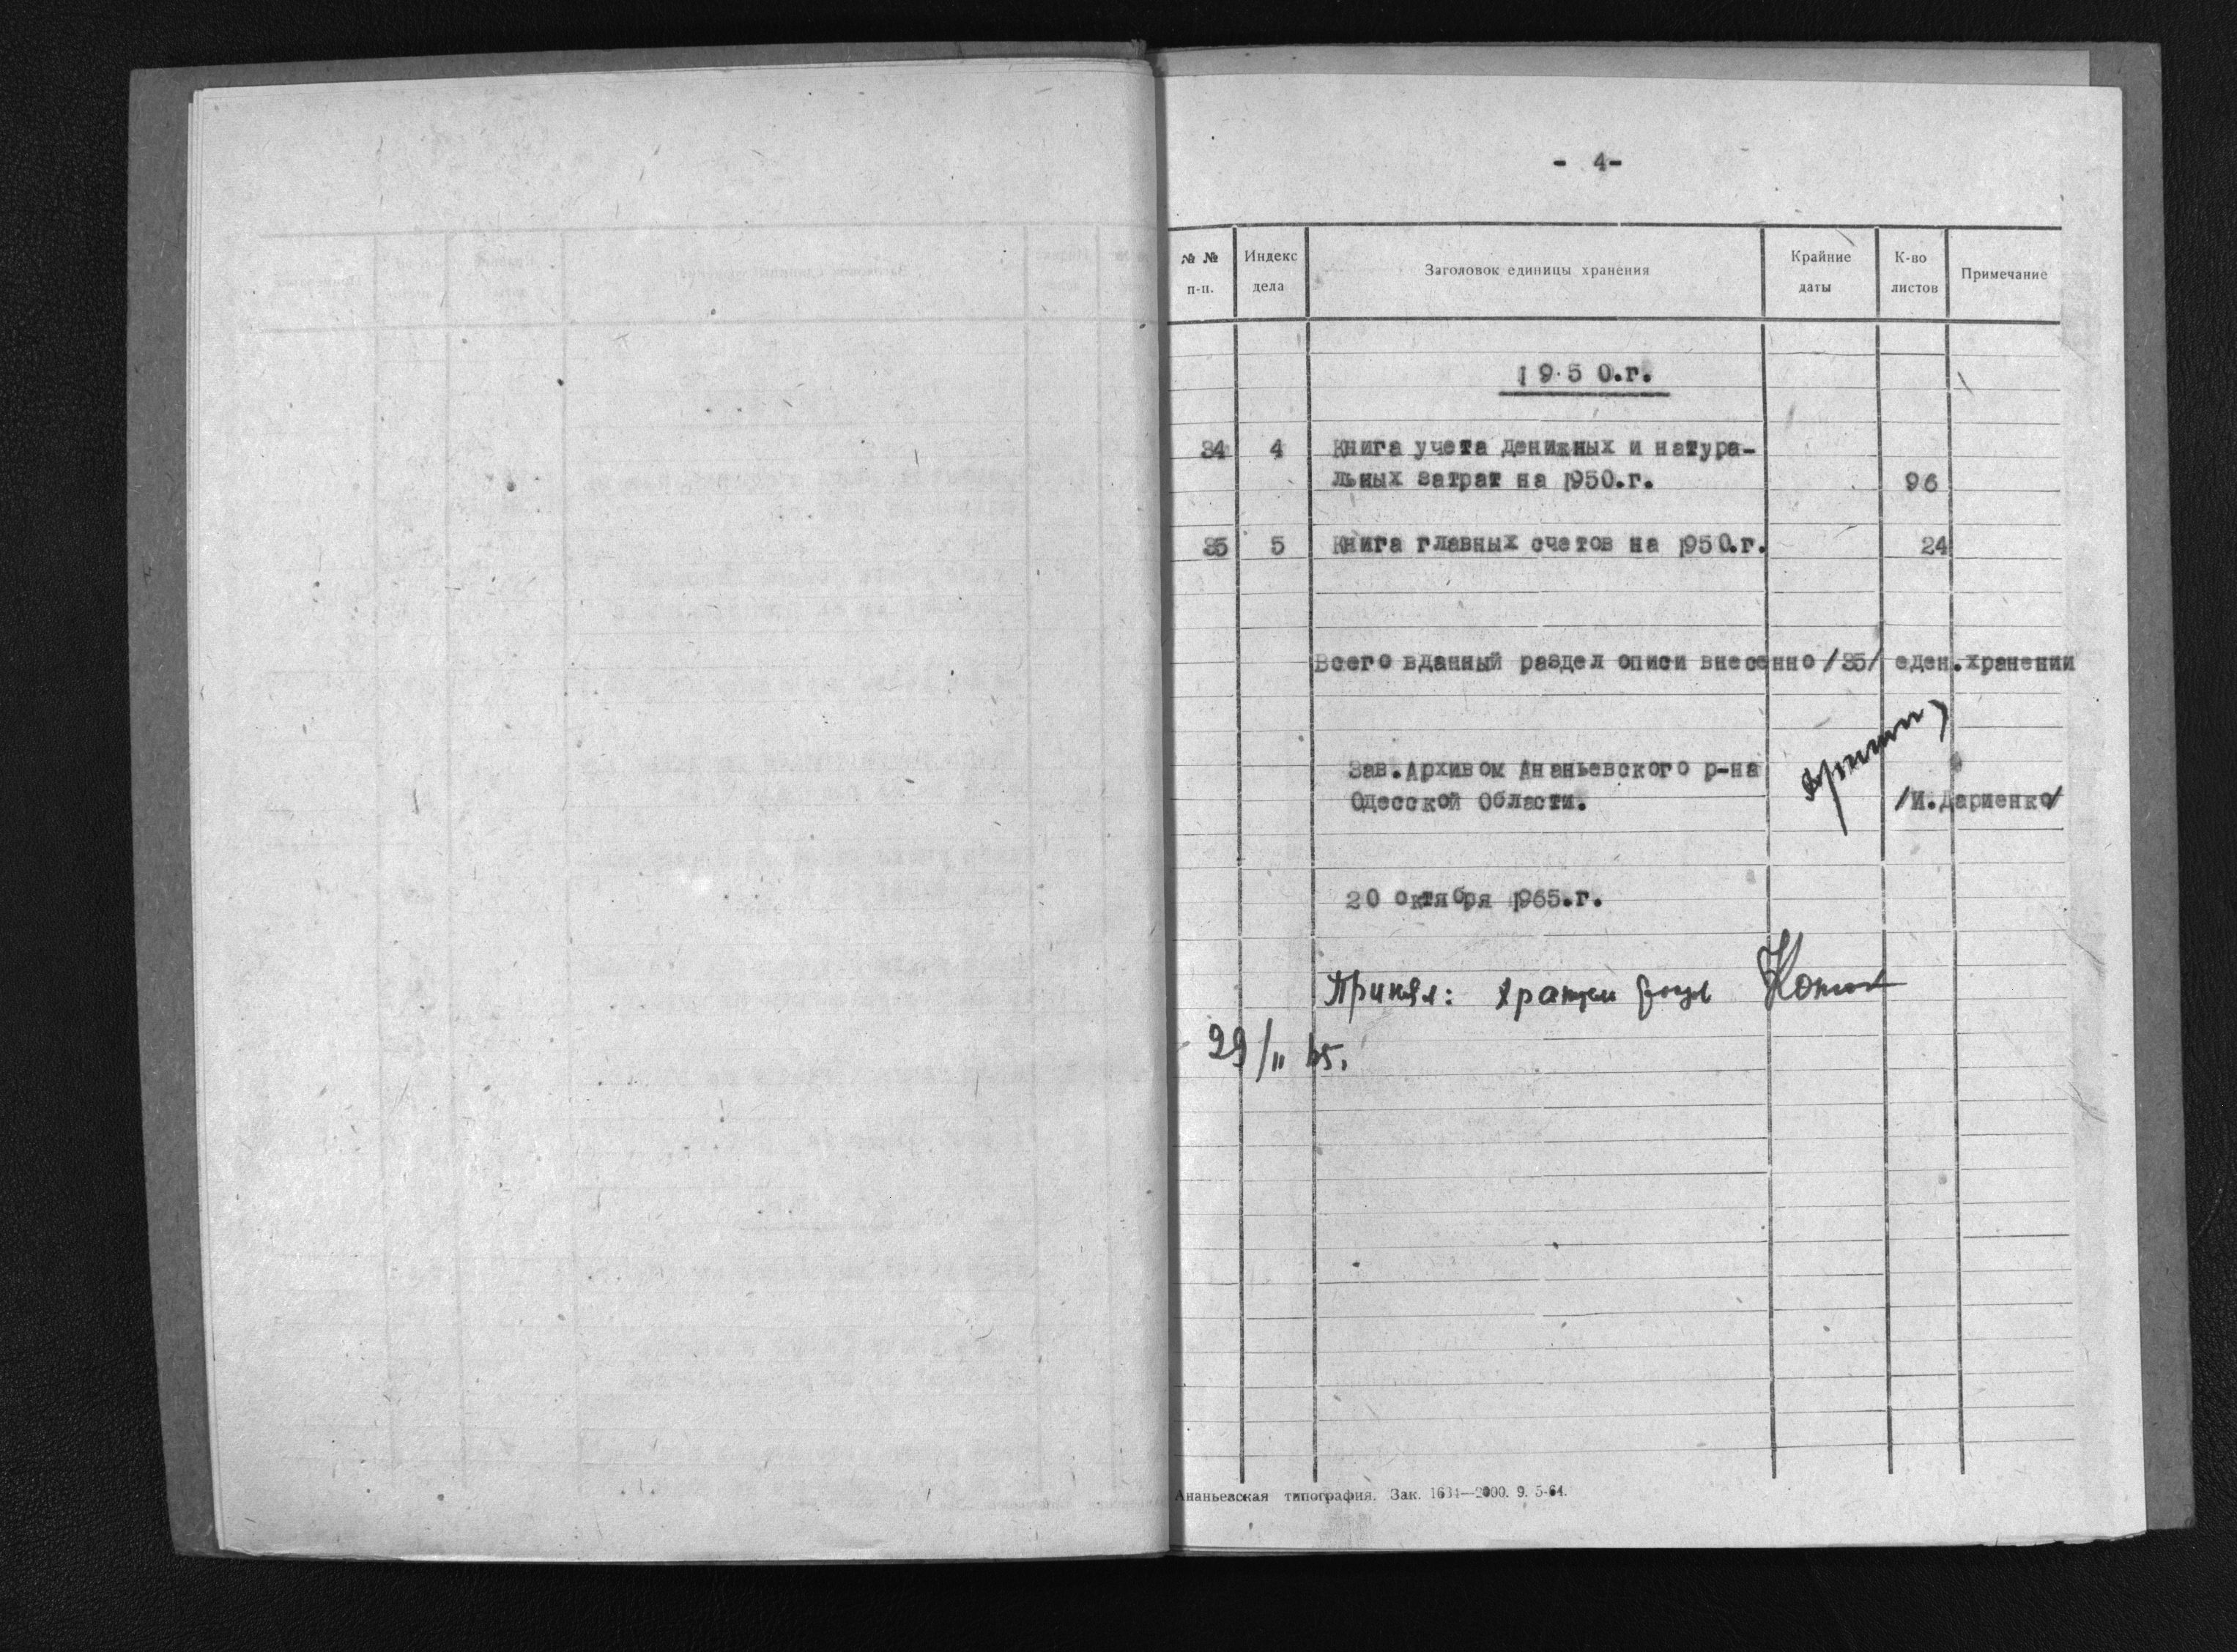 - 4-
№ № п-п. Индекс дела Заголовок единицы хранения Крайние даты К-во листов Примечание
19·5 0.г.
34 4 Книга учета денижных и натура-
льных затрат на 1950.г. 96
35 5 Книга главных счетов на 1950.г. 24
Всего вданный раздел описи внесенно /35/ еден.хранении
Зав.Архивом Ананьевского р-на
Одесской Области. /И.Дариенко/
20 октября 1965.г.
Принял:
29/II 65.
Ананьевская типография. Зак. 1634—2000. 9. 5-64.